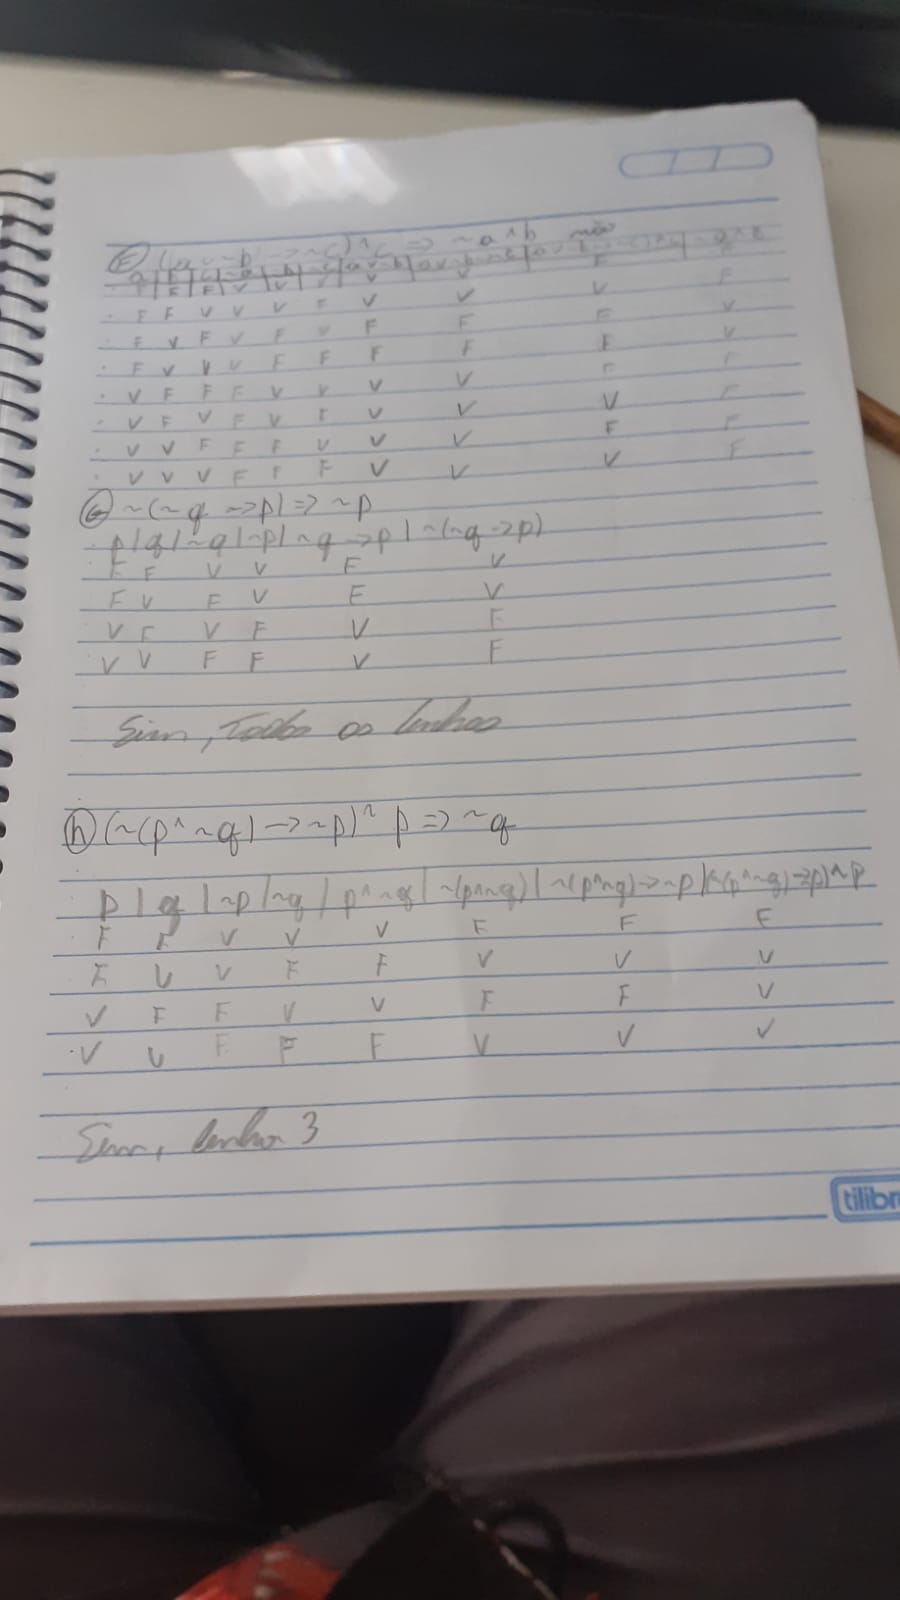 (a v ~b → ~c) ^ c => ~a ^ b não
F F V V V F V V V F
F V F V F V F F F V
F V V V F F F F F V
V F F F V V V V F F
V F V F V F V V V F
V V F F F V V V F F
V V V F F F V V V F
G ~(~q → p) => ~p
p | q | ~q | ~p | ~q → p | ~(~q → p)
F F V V F V
F V F V F V
V F V F V F
V V F F V F
Sim, Todas as linhas
h (~(p ^ ~q) → ~p) ^ p => ~q
p | q | ~p | ~q | p ^ ~q | ~(p ^ ~q) | ~(p ^ ~q) → ~p | (~(p ^ ~q) → p) ^ ~p
F F V V V F F F
F V V F F V V V
V F F V V F F V
V V F F F V V V
Sim, linha 3
tilibr